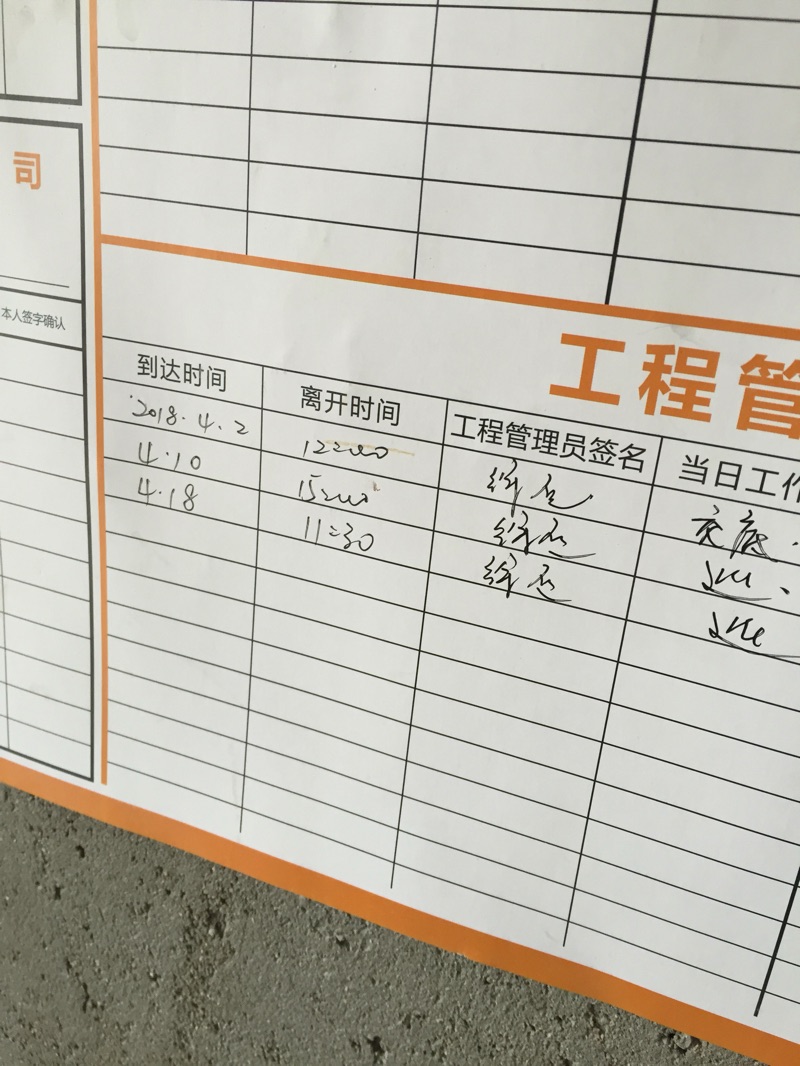 司
本人签字确认
工程管
到达时间 离开时间 工程管理员签名 当日工作
2018.4.2 12:00
4.10 15:00
4.18 11:30
交底.